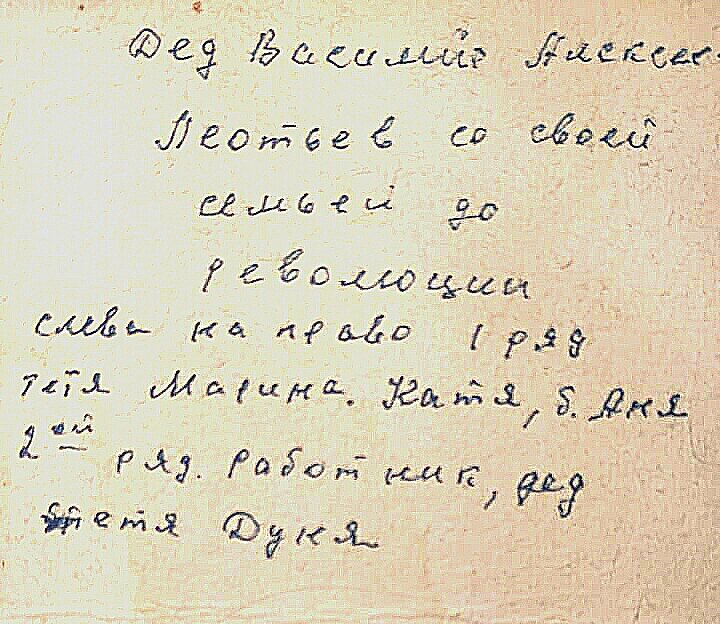 Дед Василий Алексее-
Леотьев со своей
семьей до
революции
слева на право 1 ряд
тетя Марина. Катя, б. Аня
2ой ряд. работник, дед
тетя Дуня